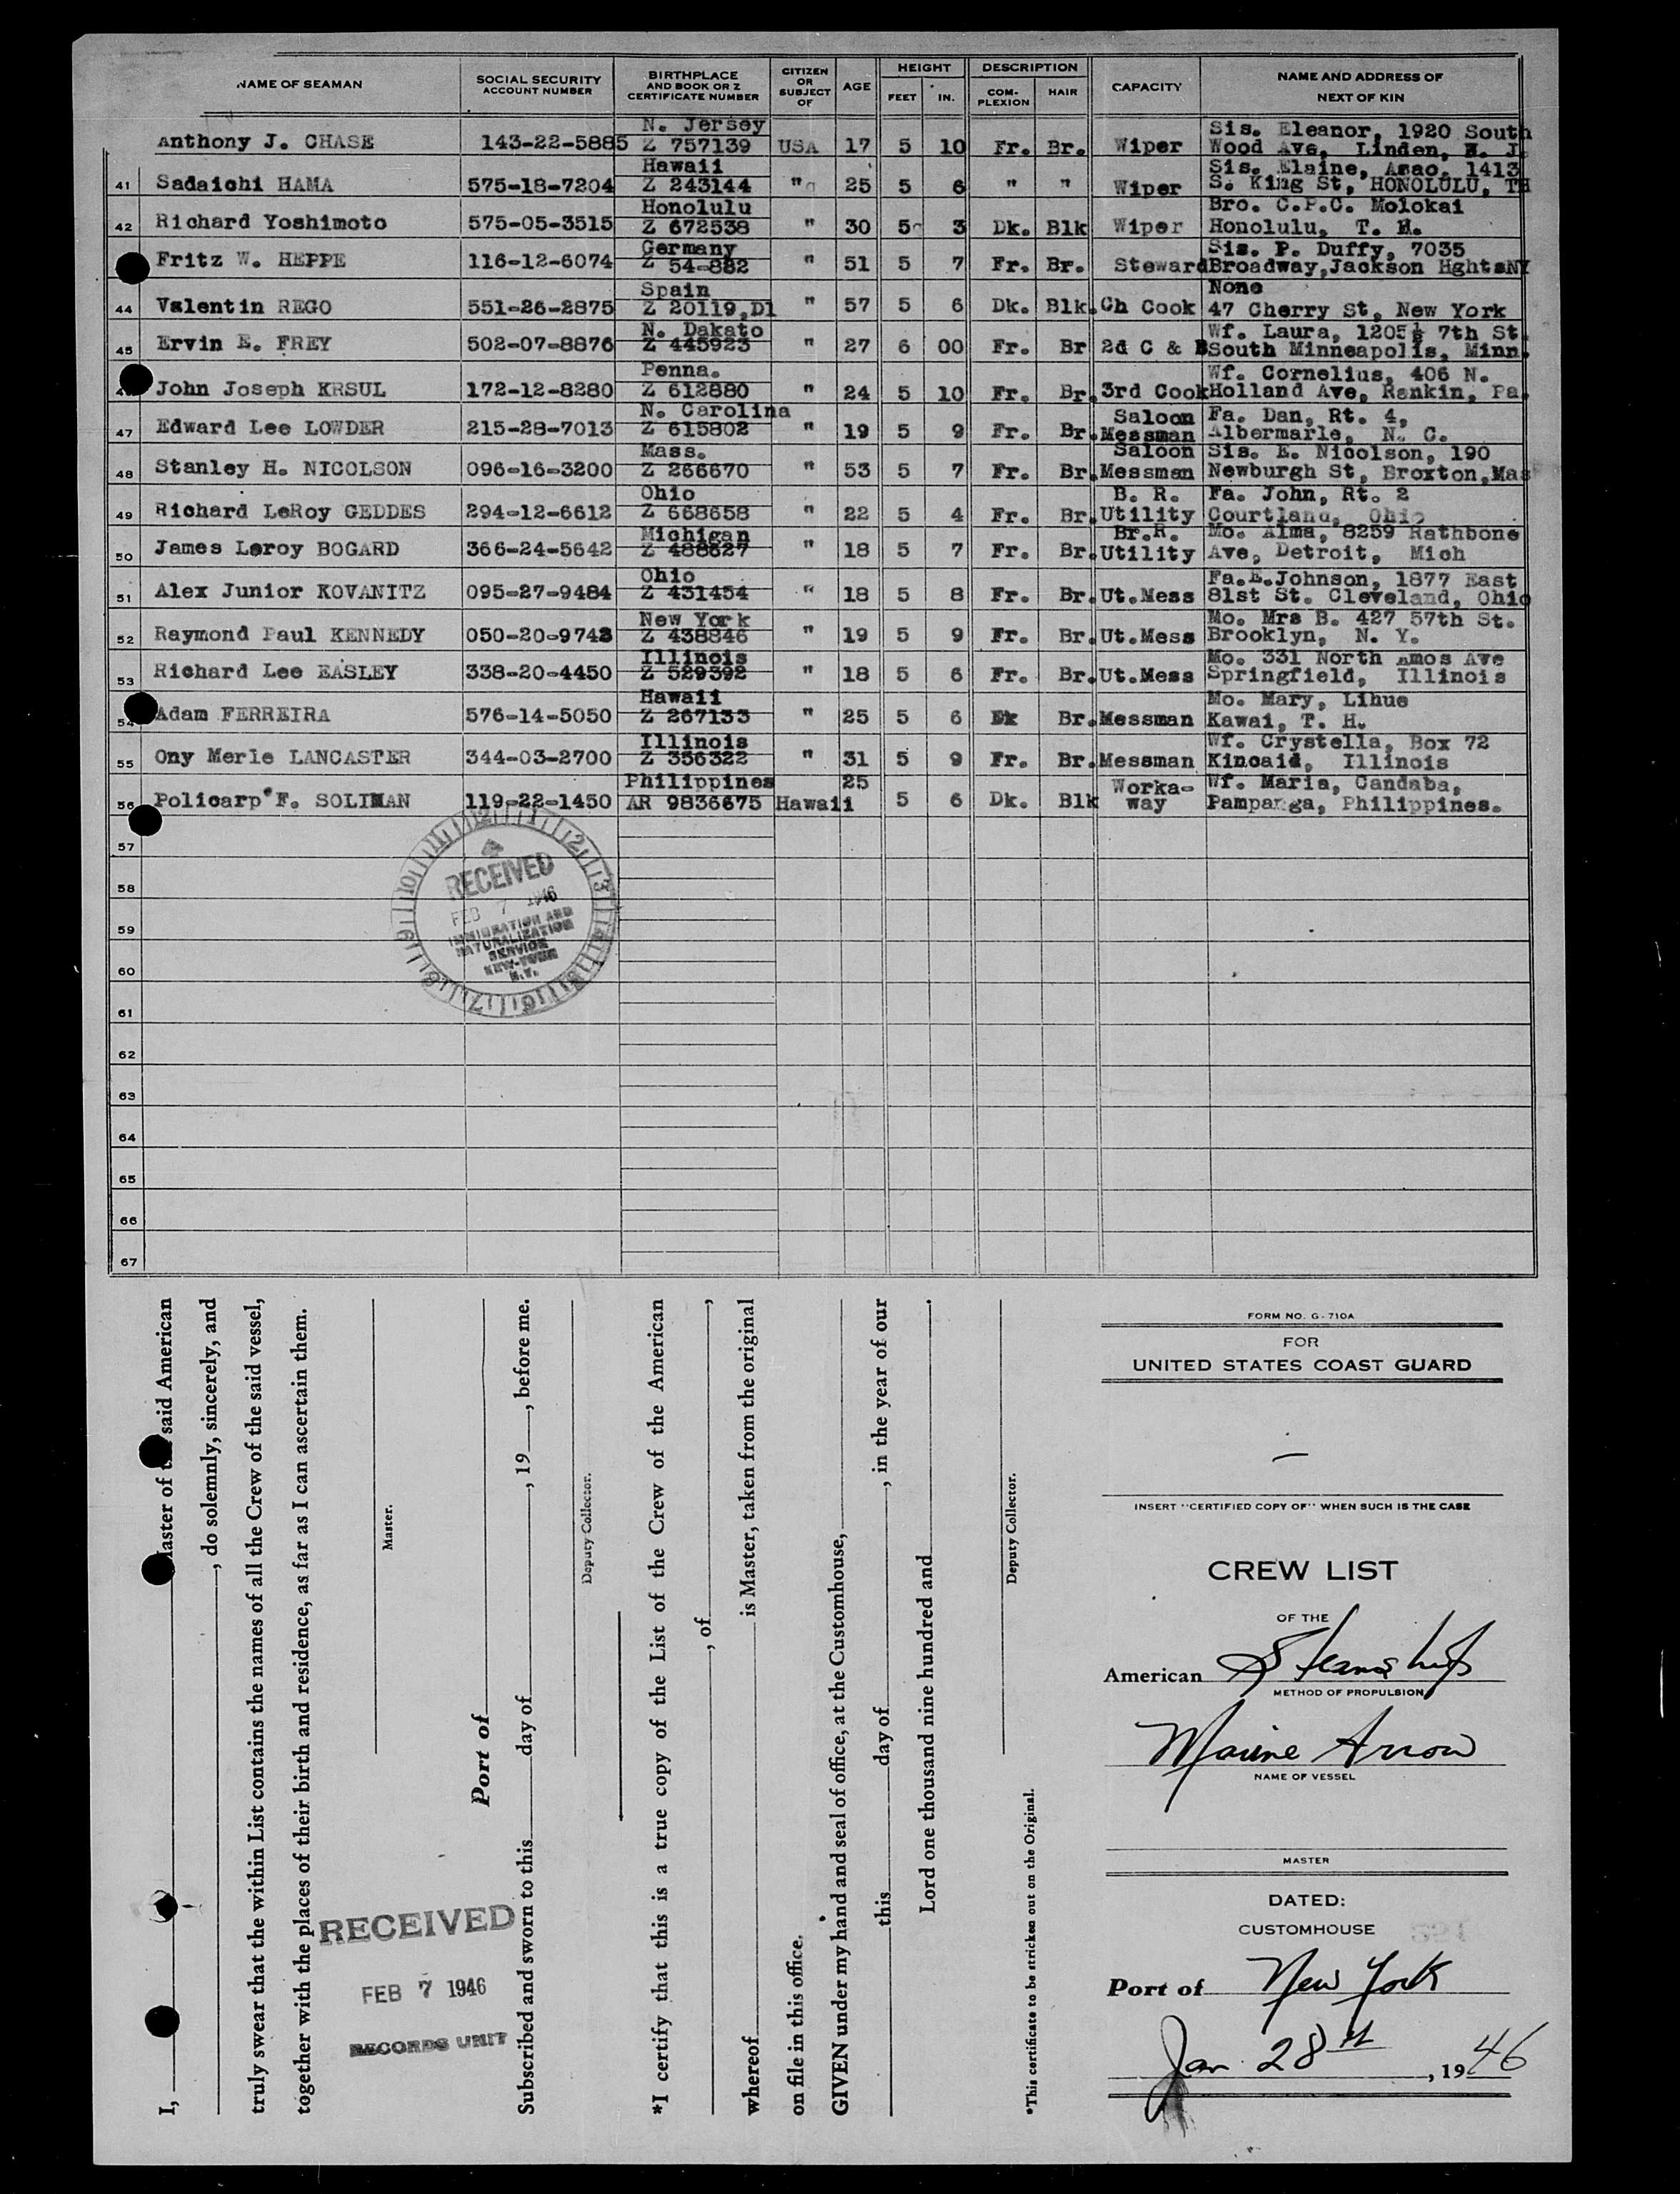 NAME OF SEAMAN
SOCIAL SECURITY ACCOUNT NUMBER
BIRTHPLACE AND BOOK OR Z CERTIFICATE NUMBER
CITIZEN OR SUBJECT OF
AGE
HEIGHT
FEET
IN.
DESCRIPTION
COM-PLEXION
HAIR
CAPACITY
NAME AND ADDRESS OF NEXT OF KIN
Anthony J. CHASE 143-22-5885 N. Jersey Z 757139 USA 17 5 10 Fr. Br. Wiper Sis. Eleanor, 1920 South Wood Ave, Linden, N. J.
41 Sadaichi HAMA 575-18-7204 Hawaii Z 243144 " 25 5 6 " " Wiper Sis. Elaine, 1413 S. King St, HONOLULU, TH
42 Richard Yoshimoto 575-05-3515 Honolulu Z 672538 " 30 5 3 Dk. Blk Wiper Bro. C.P.C. Molokai Honolulu, T. H.
Fritz W. HEPPE 116-12-6074 Germany Z 54-882 " 51 5 7 Fr. Br. Steward Sis. P. Duffy, 7035 Broadway,Jackson HghtsNY
44 Valentin REGO 551-26-2875 Spain Z 20119,D1 " 57 5 6 Dk. Blk. Ch Cook None 47 Cherry St, New York
45 Ervin E. FREY 502-07-8876 N. Dakato Z 445923 " 27 6 00 Fr. Br 2d C & B Wf. Laura, 1205½ 7th St South Minneapolis, Minn.
John Joseph KRSUL 172-12-8280 Penna. Z 612880 " 24 5 10 Fr. Br. 3rd Cook Wf. Cornelius, 406 N. Holland Ave, Rankin, Pa.
47 Edward Lee LOWDER 215-28-7013 N. Carolina Z 615802 " 19 5 9 Fr. Br. Saloon Messman Fa. Dan, Rt. 4, Albermarle, N. C.
48 Stanley H. NICOLSON 096-16-3200 Mass. Z 266670 " 53 5 7 Fr. Br. Saloon Messman Sis. E. Nicolson, 190 Newburgh St, Broxton,Mas
49 Richard LeRoy GEDDES 294-12-6612 Ohio Z 668658 " 22 5 4 Fr. Br. B. R. Utility Fa. John, Rt. 2 Courtland, Ohio
50 James Leroy BOGARD 366-24-5642 Michigan Z 488627 " 18 5 7 Fr. Br. Br.R. Utility Mo. Alma, 8259 Rathbone Ave, Detroit, Mich
51 Alex Junior KOVANITZ 095-27-9484 Ohio Z 431454 " 18 5 8 Fr. Br. Ut.Mess Fa.E.Johnson, 1877 East 81st St. Cleveland, Ohio
52 Raymond Paul KENNEDY 050-20-9743 New York Z 438846 " 19 5 9 Fr. Br. Ut.Mess Mo. Mrs B. 427 57th St. Brooklyn, N. Y.
53 Richard Lee EASLEY 338-20-4450 Illinois Z 529392 " 18 5 6 Fr. Br. Ut.Mess Mo. 331 North Amos Ave Springfield, Illinois
54 Adam FERREIRA 576-14-5050 Hawaii Z 267133 " 25 5 6 Dk Br. Messman Mo. Mary, Lihue Kawai, T. H.
55 Ony Merle LANCASTER 344-03-2700 Illinois Z 356322 " 31 5 9 Fr. Br. Messman Wf. Crystella, Box 72 Kincaid, Illinois
56 Policarp F. SOLIMAN 119-22-1450 Philippines AR 9836675 Hawaii 25 5 6 Dk. Blk Worka-way Wf. Maria, Candaba, Pampanga, Philippines.
57
58
59
60
61
62
63
64
65
66
67
RECEIVED
FEB 7 1946
IMMIGRATION AND
NATURALIZATION
SERVICE
NEW-YORK
N.Y.
I, Master of the said American
, do solemnly, sincerely, and
truly swear that the within List contains the names of all the Crew of the said vessel,
together with the places of their birth and residence, as far as I can ascertain them.
Master.
Port of
Subscribed and sworn to this day of , 19 , before me.
Deputy Collector.
*I certify that this is a true copy of the List of the Crew of the American
, of ,
whereof is Master, taken from the original
on file in this office.
GIVEN under my hand and seal of office, at the Customhouse,
this day of , in the year of our
Lord one thousand nine hundred and .
Deputy Collector.
*This certificate to be stricken out on the Original.
RECEIVED
FEB 7 1946
RECORDS UNIT
FORM NO. G-710A
FOR
UNITED STATES COAST GUARD
INSERT "CERTIFIED COPY OF" WHEN SUCH IS THE CASE
CREW LIST
OF THE
American Steamship
METHOD OF PROPULSION
Marine Arrow
NAME OF VESSEL
MASTER
DATED:
CUSTOMHOUSE
Port of New York
Jan 28th, 1946